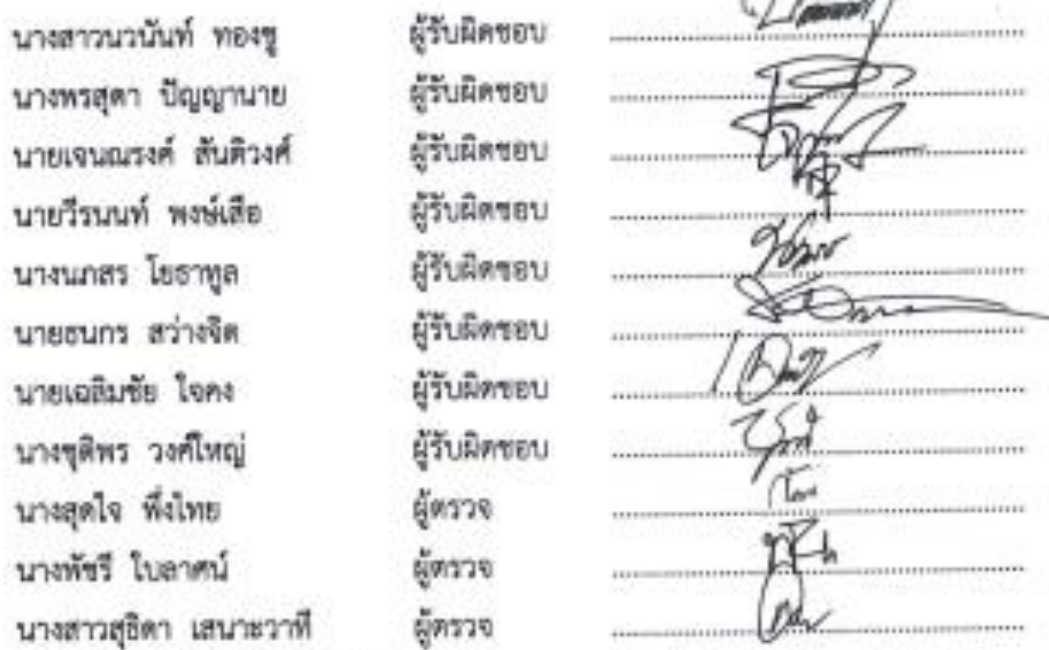 นางสาวนวนันท์ ทองชู ผู้รับผิดชอบ
นางพรสุดา ปัญญานาย ผู้รับผิดชอบ
นายเจนณรงค์ สันติวงศ์ ผู้รับผิดชอบ
นายวีรนนท์ พงษ์เสือ ผู้รับผิดชอบ
นางนภสร โยธาทูล ผู้รับผิดชอบ
นายธนกร สว่างจิต ผู้รับผิดชอบ
นายเฉลิมชัย ใจคง ผู้รับผิดชอบ
นางชุติพร วงศ์ใหญ่ ผู้รับผิดชอบ
นางสุดใจ พึ่งไทย ผู้ตรวจ
นางพัชรี ใบลาศน์ ผู้ตรวจ
นางสาวสุธิดา เสนาะวาที ผู้ตรวจ